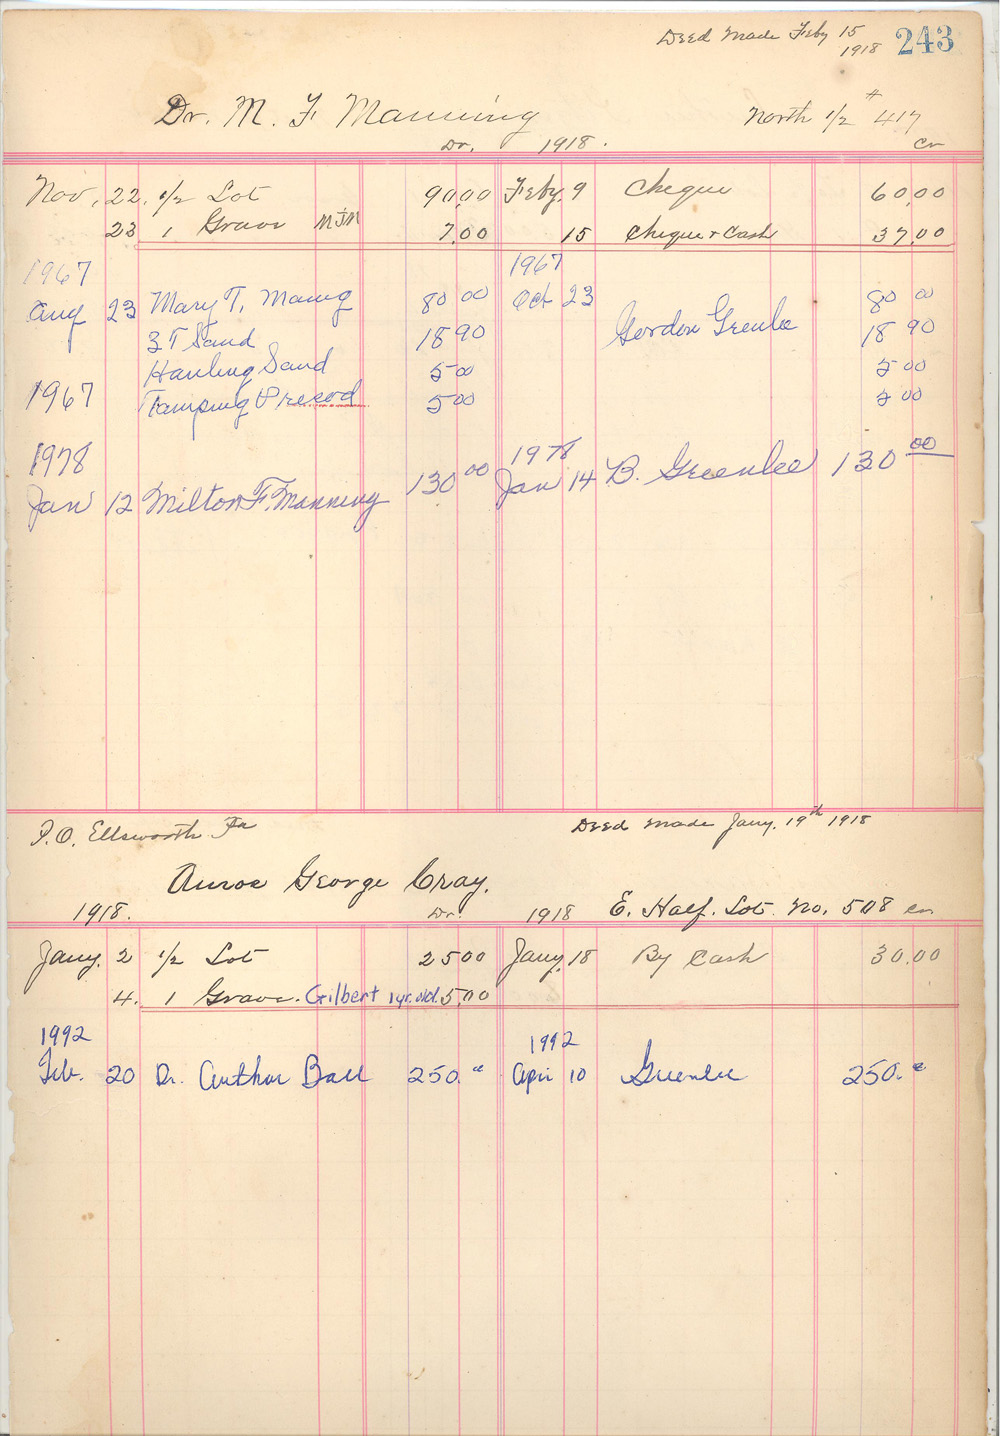 Deed Made Feby 15
1918 243
Dr. M. F. Manning North 1/2 # 417
Dr. 1918. Cr
Nov. 22. 1/2 Lot 90,00 Feby. 9 Cheque 60,00
23 1 Grave 7,00 15 Cheque + Cash 37,00
1967 1967
Aug 23 Mary T. 80 00 Oct 23 80 00
3 T Sand 18 90 Gordon Greenlee 18 90
Hauling Sand 5 00 5 00
1967 Tamping 5 00 5 00
1978 1978
Jan 12 Milton F. Manning 130 00 Jan 14 B. Greenlee 130 00
P.O. Ellsworth Deed Made Jany. 19th 1918
George Cray.
1918. Dr. 1918 E. Half. Lot No. 508 Cr.
Jany. 2 1/2 Lot 25 00 Jany. 18 By Cash 30.00
4. 1 Grave. Gilbert 1 yr. old. 5,00
1992 1992
Feb. 20 Dr. Arthur Ball 250. Apr 10 Greenlee 250.